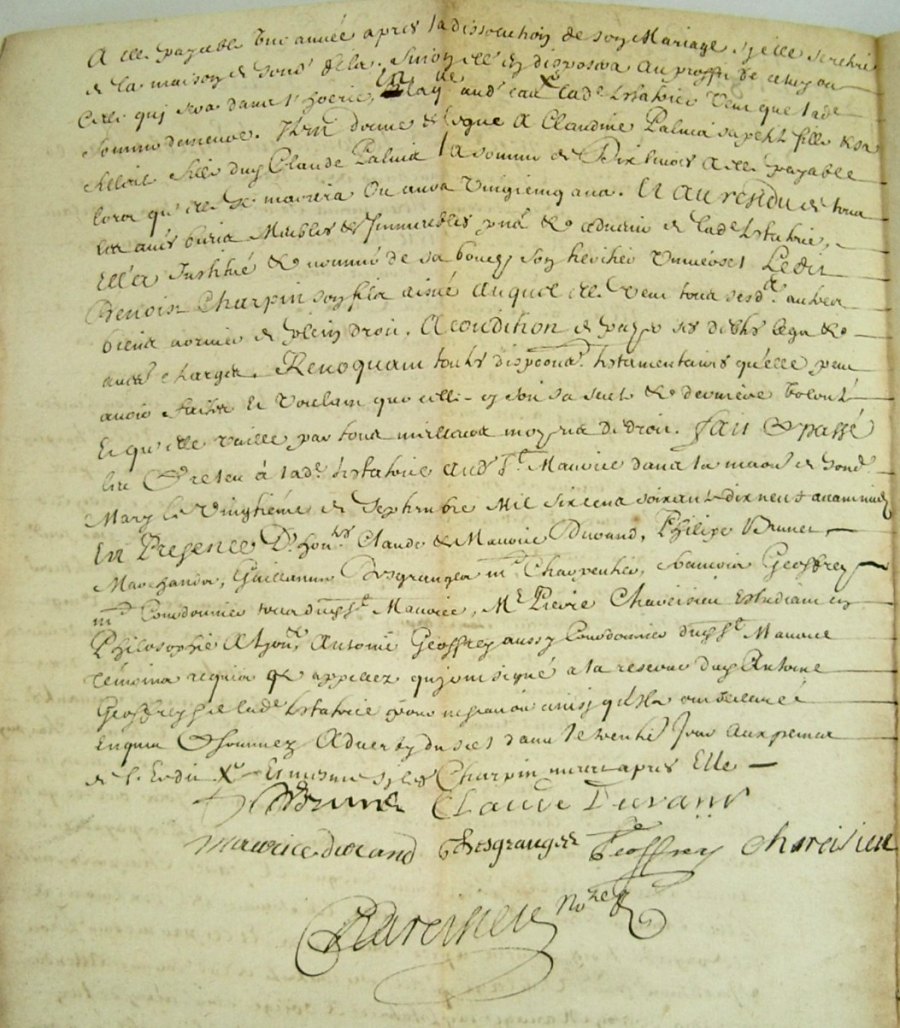 A elle payable une année apres la dissolution de son Mariage sy elle se retire
de la maison de sond. de la. Sinon elle en disposera au proffit de celuy ou
Celle qui sera dans l'hoerie, aud. cas lade testatrice Veut que lade
somme demeure. Item donne & legue A Claudine Palmia sa petite fille &
filleule fille dud Claude Palmia la somme de Dix livres A elle payable
lors qu'elle se mariera Ou aura Vingtcinq ans. Et Au residu de tous
les aues biens Meubles & Immeubles de lade testatrice,
Ell'a Institué & nommé de sa bouche son heritier Universel Ledit
Benoist Charpin son fils aisné Auquel elle Veut tous sesd. autres
biens arrivier de plein droit. A condition de payer ses dicts legs &
aues charges. Revoquant toutes dispoons testamentaires qu'elle peut
avoir faites Et Voulant que celle-cy soit sa seule & derniere Volonté
Et qu'elle vaille par tous meilleurs moyens de droit. Fait & passé
leu & releu à lade testatrice aud St Maurice dans la maon de sond.
Mary le Vingtiéme de Septembre Mil six cens soixante dix neuf avant midy
En Presence D'honles Claude & Maurice Durand, Philipe Brunet
Marchands, Guillaume Desgranges me Charpentier, Geoffrey
me Courdonnier tous dud St Maurice, Me Pierre Chareisieu Estudiant en
Philosophie A Lyon, Antoine Geoffrey aussy Courdonnier dud St Maurice
témoins requis & appellez qui ont signé a la reserve dud Antoine
Geoffrey & de lade testatrice pour ne sçavoir ainsy qu'ils ont declaré
Enquis & sommez Adverty du sel dans le trente Jour Aux peines
de l'Eedit Et mesme sy led Charpin meurt apres Elle
Brunet Claude Durand
Maurice Durand Desgranges Geoffrey Chareisieu
Chareisieu Nore